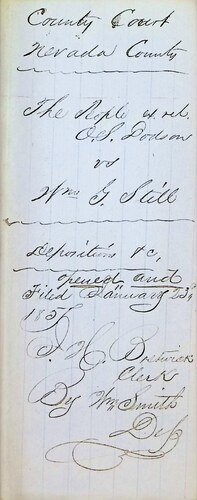 County Court
Nevada County
The People ex rel.
O.S. Dodson
vs
Wm G. Still
Depositions &c,
opened and
Filed January 23d,
185
H. Bostwick
Clerk
By Wm Smith
Dep